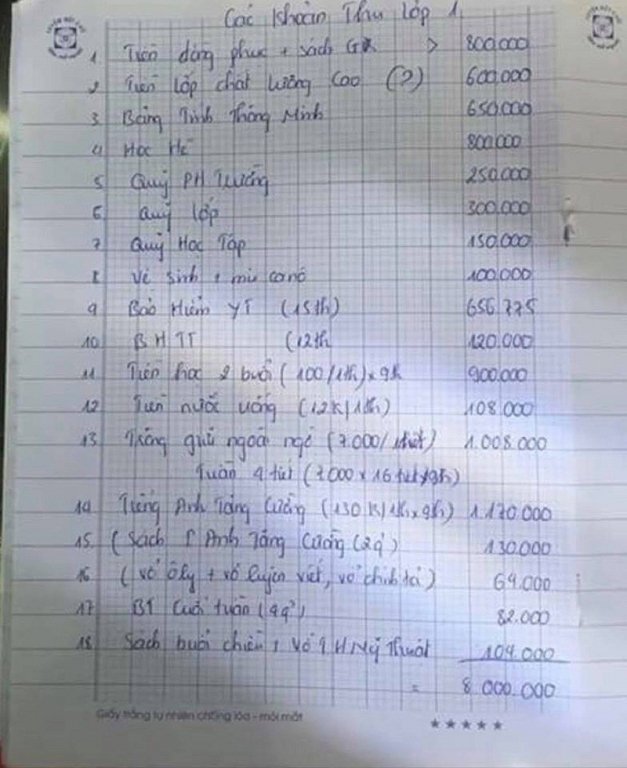 Các Khoản Thu lớp 1.
1 Tiền đồng phục + sách GK > 800.000
2 Tiền lớp chất lượng cao (?) 600.000
3 Bảng Tính Thông Minh 650.000
4 Học Hè 800.000
5 Quỹ PH Trường 250.000
6 Quỹ lớp 300.000
7 Quỹ Học Tập 150.000
8 Vệ sinh + mũ ca nô 100.000
9 Bảo Hiểm YT (15th) 656.775
10 BHTT (12th 120.000
11 Tiền học 2 buổi (100/1th) x 9th 900.000
12 Tiền nước uống (12K/1th) 108.000
13 Trông giữ ngoài ngờ (7.000/1tiết) 1.008.000
Tuần 4 tiết (7000 x 16 tiết/9th)
14 Tiếng Anh Tăng Cường (130K/1th x 9th) 1.170.000
15 (Sách T Anh Tăng Cường (2q) 130.000
16 (vở ôly + vở luyện viết, vở chính tả) 69.000
17 BT Cuối tuần (4q) 82.000
18 Sách buổi chiều + vở Mỹ Thuật 104.000
= 8.000.000
Giấy trắng tự nhiên chống lóa - mỏi mắt